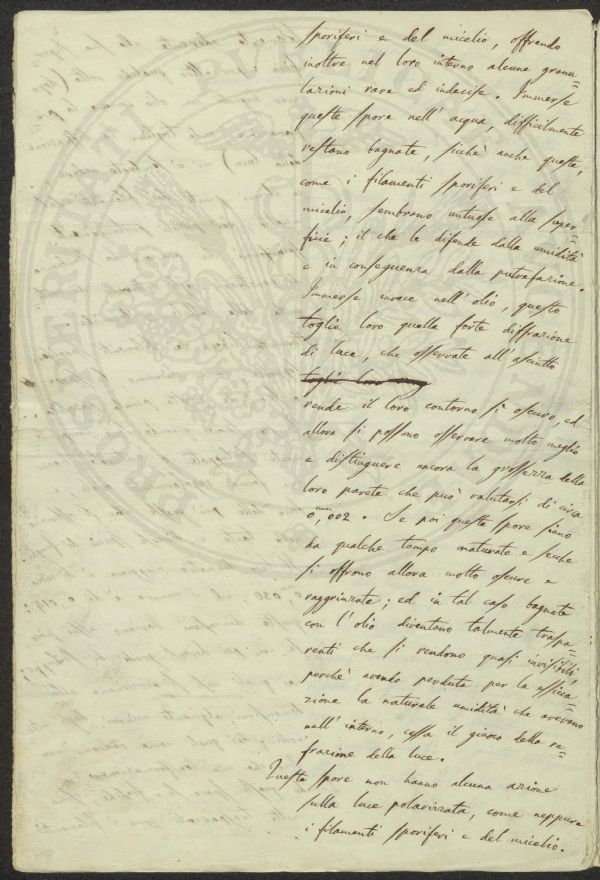 sporiferi e del micelio, offrendo
inoltre nel loro interno alcune granu=
lazioni rare ed indecise. Immerse
queste spore nell' acqua, difficilmente
restano bagnate, sichè anche queste,
come i filamenti sporiferi e del
micelio, sembrano untuose alla super=
ficie; il che le difende dalla umidità
e in conseguenza dalla putrefazione.
Immerse invece nell' olio, questo
toglie loro quella forte diffrazione
di luce, che osservate all' asciutto
toglie loro
rende il loro contorno sì oscuro, ed
allora si possono osservare molto meglio
e distinguere ancora la grossezza della
loro parete che può valutarsi di circa
0,mm002. Se poi queste spore siano
da qualche tempo maturate e secche
si offrono allora molto oscure e
raggrinzate; ed in tal caso bagnate
con l' olio diventano talmente traspa=
renti che si rendono quasi invisibili,
perchè avendo perduta per la essicca=
zione la naturale umidità che avevano
nell' interno, cessa il giuoco della re=
frazione della luce.
Queste spore non hanno alcuna azione
sulla luce polarizzata, come neppure
i filamenti sporiferi e del micelio.